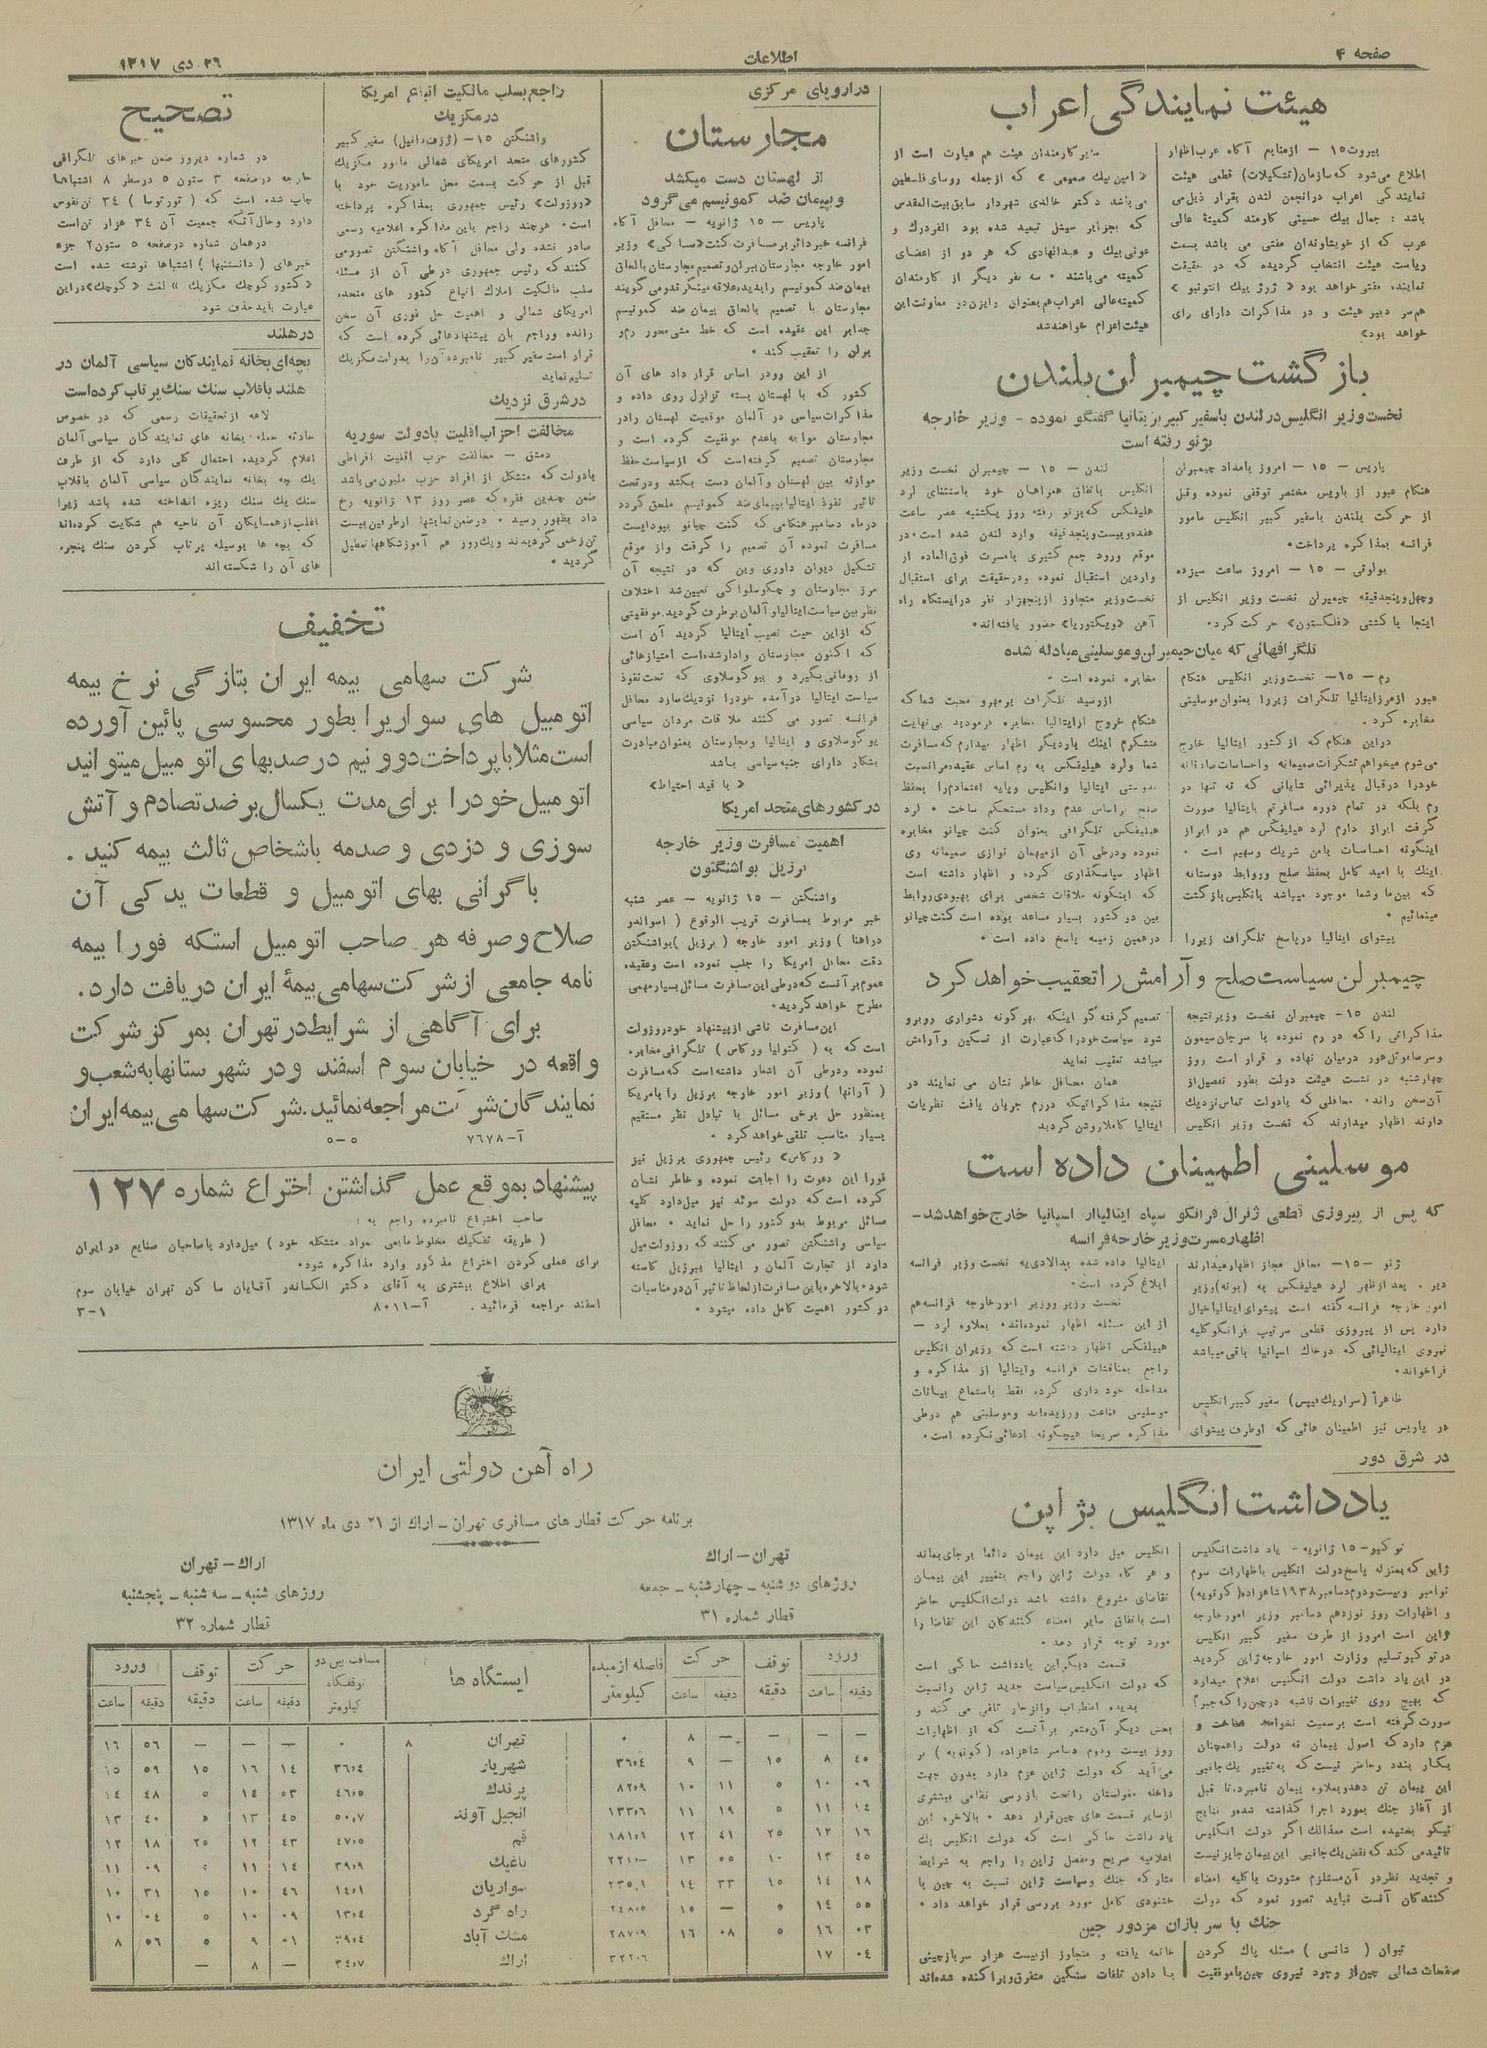 صفحه ۴
اطلاعات
۲۶ دی ۱۳۱۷
هیئت نمایندگی اعراب
بیروت ۱۵ - ازمنابع آگاه عرب اظهار
اطلاع می‌شود که سازمان (تشکیلات) قطعی هیئت
نمایندگی اعراب درانجمن لندن بقرار ذیل می
باشد : جمال بیك حسینی کارمند کمیتهٔ عالی
عرب که از خویشاوندان مفتی می باشد بسمت
ریاست هیئت انتخاب گردیده که در حقیقت
نماینده مفتی خواهد بود « ژرژ بیك انتونیو »
هم‌سر دبیر هیئت و در مذاکرات دارای رای
خواهد بود»
سایر کارمندان هیئت هم عبارت است از
« امین بیك صمیمی » که ازجمله روسای فلسطین
می باشد دکتر خالدی شهردار سابق بیت‌المقدس
که بجزایر سیشل تبعید شده بود الفردرك و
عونی بیك و عبدالهادی که هر دو از اعضای
کمیته می‌باشند ۰ سه نفر دیگر از کارمندان
کمیته‌عالی اعراب هم بعنوان رایزن در معاونت این
هیئت اعزام خواهند شد
بازگشت چیمبرلن بلندن
نخست وزیر انگلیس در لندن باسفیر کبیر بریتانیا گفتگو نموده - وزیر خارجه
بژنو رفته است
پاریس - ۱۵ - امروز بامداد چیمبرلن
هنگام عبور از پاریس مختصر توقفی نموده وقبل
از حرکت بلندن باسفیر کبیر انگلیس مامور
فرانسه بمذاکره پرداخت۰
بولونی - ۱۵ - امروز ساعت سیزده
وچهل‌و‌پنجدقیقه چیمبرلن نخست وزیر انگلیس از
اینجا با کشتی «فلکستون» حرکت کرد۰
لندن - ۱۵ - چیمبرلن نخست وزیر
انگلیس باتفاق همراهان خود باستثنای لرد
هلیفکس که بژنو رفته روز یکشنبه عصر ساعت
هفده‌و‌بیست‌و‌پنجدقیقه وارد لندن شده است۰در
موقع ورود جمع کثیری بامسرت فوق‌العاده از
واردین استقبال نموده ودرحقیقت برای استقبال
نخست‌وزیر متجاوز ازپنجهزار نفر درایستگاه راه
آهن «ویکتوریا» حضور یافته‌اند۰
تلگرافهائی که میان چیمبرلن و موسلینی مبادله شده
رم - ۱۵- نخست‌وزیر انگلیس هنگام
عبور ازمرز ایتالیا تلگراف زیررا بعنوان موسلینی
مخابره کرد ۰
دراین هنگام که از کشور ایتالیا خارج
می‌شوم میخواهم تشکرات صمیمانه واحساسات صادقانه
خودرا درقبال پذیرائی شایانی که نه تنها در
رم بلکه در تمام دوره مسافرتم بایتالیا صورت
گرفت ابراز دارم لرد هیلیفکس هم در ابراز
اینگونه احساسات بامن شریك وسهیم است ۰
اینك با امید کامل بحفظ صلح وروابط دوستانه
که بین‌ما وشما موجود میباشد بانگلیس بازگشت
مینمائیم ۰
پیشوای ایتالیا درپاسخ تلگراف زیررا
مخابره نموده است ۰
ازرسید تلگراف پرمهرو محبت شما که
هنگام خروج ازایتالیا مخابره فرمودید بی‌نهایت
متشکرم اینك باردیگر اظهار میدارم که مسافرت
شما ولرد هیلیفکس به رم اساس عقیده‌مرا نسبت
بدوستی ایتالیا وانگلیس وپایه اعتمادم‌را بحفظ
صلح براساس عدم وداد مستحکم ساخت ۰ لرد
هیلیفکس تلگرافی بعنوان کنت چیانو مخابره
نموده ودرطی آن ازمیهمان نوازی صمیمانه وی
اظهار سپاسگذاری کرده و اظهار داشته است
که اینگونه ملاقات شخصی برای بهبودی روابط
بین دو کشور بسیار مساعد بوده است کنت چیانو
درهمین زمینه پاسخ داده است ۰
چیمبرلن سیاست صلح و آرامش را تعقیب خواهد کرد
لندن ۱۵- چیمبرلن نخست وزیر نتیجه
مذاکراتی را که در رم نموده با سرجان‌سیمون
وسرساموئل‌هور درمیان نهاده و قرار است روز
چهارشنبه در نشست هیئت دولت بطور تفصیل از
آن‌سخن راند۰ محافلی که بادولت تماس‌نزدیك
دارند اظهار میدارند که نخست وزیر انگلیس
تصمیم گرفته گو اینکه بهرگونه دشواری روبرو
شود سیاست خودرا که‌عبارت از تسکین وآرامش
میباشد تعقیب نماید
همان محافل خاطر نشان می نمایند در
نتیجه مذاکراتیکه دررم جریان یافت نظریات
ایتالیا کاملاروشن گردید
موسلینی اطمینان داده است
که پس از پیروزی قطعی ژنرال فرانکو سپاه ایتالیااز اسپانیا خارج خواهد شد-
اظهار مسرت وزیر خارجه فرانسه
ژنو -۱۵- محافل مجاز اظهار میدارند
دیر ۰ بعد از ظهر لرد هیلیفکس به (بونه) وزیر
امور خارجه فرانسه گفته است پیشوای ایتالیا خیال
دارد پس از پیروزی قطعی سرتیپ فرانکو کلیه
نیروی ایتالیائی که درخاك اسپانیا باقی میباشد
فراخواند۰
ظاهراً (سراریك‌فیپس) سفیر کبیر انگلیس
در پاریس نیز اطمینان هائی که ازطرف پیشوای
ایتالیا داده شده بدالادیه نخست وزیر فرانسه
ابلاغ کرده است۰
نخست وزیر ووزیر امورخارجه فرانسه‌هم
از این مسئله اظهار نموده‌اند۰ بعلاوه لرد -
هیلیفکس اظهار داشته است که وزیران انگلیس
راجع بمناقشات فرانسه وایتالیا از مذاکره و
مداخله خود داری کرده فقط باستماع بیانات
موسلینی قناعت ورزیده‌اند وموسلینی هم درطی
مذاکره صریحا هیچگونه ادعائی نکرده است۰
در شرق دور
یادداشت انگلیس بژاپن
توکیو - ۱۵ ژانویه - یاد داشت انگلیس
ژاپن که بمنزله پاسخ‌دولت انگلیس باظهارات سوم
نوامبر وبیست‌ودوم دسامبر ۱۹۳۸ شاهزاده (کونویه)
و اظهارات روز نوزدهم دسامبر وزیر امورخارجه
ژاپن است امروز از طرف سفیر کبیر انگلیس
درتوکیو تسلیم وزارت امور خارجه‌ژاپن گردید
در این یاد داشت دولت انگلیس اعلام میدارد
که بهیچ روی تغییرات ناشیه درچین‌را که‌جبراً
صورت گرفته است برسمیت نخواهد شناخت و
عزم دارد که اصول پیمان نه دولت راهمچنان
بکار بندد وحاضر نیست که به تغییر یك‌جانبی
این پیمان تن دهد وبعلاوه پیمان نامبرده تا قبل
از آغاز جنك بمورد اجرا گذاشته شده‌و نتایج
نیکو بخشیده است معذالك اگر دولت انگلیس
تائیدمی کند که نقض‌یك‌جانبی این‌پیمان جایز نیست
و تجدید نظر در آن‌مستلزم مشورت باکلیه امضاء
کنندگان آنست نباید تصور نمود که دولت
انگلیس میل دارد این پیمان دائما برجای بماند
و هر گاه دولت ژاپن راجع بتغییر این پیمان
تقاضای مشروع داشته باشد دولت‌انگلیس حاضر
است باتفاق سایر امضاء کنندگان این تقاضا را
مورد توجه قرار دهد ۰
قسمت دیگر این یادداشت حاکی است
که دولت انگلیس‌سیاست جدید ژاپن رانسبت
بدیده اضطراب وانزجار تلقی می کند و
بخش دیگر آن‌مشعر برآنست که از اظهارات
روز بیست ودوم دسامبر شاهزاده (کونویه) بر
می‌آید که دولت ژاپن عزم دارد بدون جهت
داخله مغولستان راتحت بازرسی نظامی بیشتری
ازسایر قسمت های چین‌قرار دهد ۰ بالاخره این
یاد داشت حاکی است که دولت انگلیس یك
اعلامیه صریح ومفصل ژاپن را راجع به شرایط
متارکه جنك وسیاست ژاپن نسبت به چین با
خشنودی کامل مورد بررسی قرار خواهد داد ۰
جنك با سربازان مزدور چین
تیوان ( شانسی ) مسئله پاك کردن
صفحات شمالی چین‌از وجود نیروی چین‌باموفقیت
خاتمه یافته و متجاوز ازبیست هزار سربازچینی
با دادن تلفات سنگین متفرق‌وپراکنده شده‌اند
دراروپای مرکزی
مجارستان
از لهستان دست میکشد
وبپیمان ضد کمونیسم می‌گرود
پاریس - ۱۵ ژانویه - محافل آگاه
فرانسه خبر دائر بر مسافرت کنت «ساکی» وزیر
امور خارجه مجارستان ببرلن وتصمیم مجارستان بالحاق
بپیمان‌ضد کمونیسم را بدیده‌علاقه مینگرندو می گویند
مجارستان با تصمیم بالحاق بپیمان ضد کمونیسم
جدابر این عقیده است که خط مشی محور رم‌و
برلن را تعقیب کند ۰
از این رودر اساس قرار داد های آن
کشور که با لهستان بسته تزلزل روی داده و
مذاکرات سیاسی در آلمان موقعیت لهستان رادر
مجارستان مواجه باعدم موفقیت کرده است و
مجارستان تصمیم گرفته‌است که ازسیاست حفظ
موازنه بین لهستان وآلمان دست بکشد ودرتحت
تاثیر نفوذ ایتالیا بپیمای ضد کمونیسم ملحق گردد
درماه دسامبر هنگامی که کنت چیانو ببوداپست
مسافرت نموده آن تصمیم را گرفت واز موقع
تشکیل دیوان داوری وین که در نتیجه آن
مرز مجارستان و چکوسلواکی تعیین شد اختلاف
نظر بین سیاست ایتالیاو آلمان برطرف گردید. موفقیتی
که ازاین حیث نصیب ایتالیا گردید آن است
که اکنون مجارستان وادار شده‌است امتیازهائی
از رومانی بگیرد و بیو‌گوسلاوی که تحت نفوذ
سیاست ایتالیا درآمده خودرا نزدیك‌سازد محافل
فرانسه تصور می کنند ملاقات مردان سیاسی
یوگوسلاوی و ایتالیا ومجارستان بعنوان مبادرت
بشکار دارای جنبه سیاسی باشد
« با قید احتیاط»
درکشورهای متحد امریکا
اهمیت مسافرت وزیر خارجه
برزیل بواشنگتون
واشنگتن - ۱۵ ژانویه - عصر شنبه
خبر مربوط بمسافرت قریب الوقوع ( اسوالدو
دراهنا ) وزیر امور خارجه ( برزیل ) بواشنگتن
دقت محافل امریکا را جلب نموده است وعقیده
عموم بر آنست که‌درطی این‌مسافرت مسائل بسیار مهمی
مطرح خواهد گردید۰
این‌مسافرت ناشی ازپیشنهاد خود روزولت
است که به ( گتولیا ورگاس ) تلگرافی مخابره
نموده ودرطی آن اشعار داشته‌است که‌مسافرت
( آرانها ) وزیر امور خارجه برزیل را بامریکا
بمنظور حل برخی مسائل با تبادل نظر مستقیم
بسیار مناسب تلقی خواهد کرد ۰
« ورگاس» رئیس جمهوری برزیل نیز
فورا این دعوت را اجابت نموده و خاطر نشان
کرده است‌که دولت سوئد نیز میل‌دارد کلیه
مسائل مربوط بدو کشور را حل نماید ۰ محافل
سیاسی واشنگتن تصور می کنند که روزولت میل
دارد از تجارت آلمان و ایتالیا ببرزیل کاسته
شود۰بالاخره باین مسافرت ازلحاظ تاثیر آن‌درمناسبات
دو کشور اهمیت کامل داده میشود ۰
راجع بسلب مالکیت اتباع امریکا
درمکزیك
واشنگتن ۱۵- (ژزف‌دانیل) سفیر کبیر
کشورهای متحد امریکای شمالی مامور مکزیك
قبل از حرکت بسمت محل ماموریت خود با
«روزولت» رئیس جمهوری بمذاکره پرداخته
است۰ هرچند راجع باین مذاکره اعلامیه رسمی
صادر نشده ولی محافل آگاه واشنگتن تصورمی
کنند که رئیس جمهوری درطی آن از مسئله
سلب مالکیت املاك اتباع کشور های متحده
امریکای شمالی و اهمیت حل فوری آن سخن
رانده وراجع بان پیشنهادهائی کرده است که
قرار است سفیر کبیر نامبرده آن‌را بدولت مکزیك
تسلیم نماید
درشرق نزدیك
مخالفت احزاب اقلیت بادولت سوریه
دمشق - مخالفت حزب اقلیت افراطی
بادولت که متشکل از افراد حزب ملیون می‌باشد
ضمن چندین فقره که عصر روز ۱۳ ژانویه رخ
داد بظهور رسید ۰ درضمن نمایشها ازطرفین بیست
تن زخمی گردیدند ویك‌روز هم آموزشگاهها تعطیل
گردید ۰
تصحیح
در شماره دیروز ضمن خبرهای تلگرافی
خارجه در صفحه ۳ ستون ۵ درسطر ۸ اشتباها
چاپ شده است که ( تورتوسا ) ۳۴ تن نفوس
دارد وحال آنکه جمعیت آن ۳۴ هزار تن است
درهمان شماره در صفحه ۵ ستون ۲ جزء
خبرهای (دانستنیها) اشتباها نوشته شده است
«کشور کوچك مکزیك» لغت «کوچك» دراین
عبارت باید حذف شود
درهلند
بچه‌ای بخانه نمایندگان سیاسی آلمان در
هلند باقلاب سنك سنك پرتاب کرده است
لاهه ازتحقیقات رسمی که در خصوص
حادثه حمله بخانه های نمایندگان سیاسی آلمان
اعلام گردیده احتمال کلی دارد که از طرف
یك بچه بخانه نمایندگان سیاسی آلمان باقلاب
سنك یك سنك ریزه انداخته شده باشد زیرا
اغلب ازهمسایگان آن ناحیه هم شکایت کرده‌اند
که بچه ها بوسیله پرتاب کردن سنك پنجره
های آن را شکسته‌اند
تخفیف
شرکت سهامی بیمه ایران بتازگی نرخ بیمه
اتومبیل های سواریرا بطور محسوسی پائین آورده
است مثلا با پرداخت دو و نیم درصد بهای اتومبیل میتوانید
اتومبیل خودرا برای مدت یکسال بر ضد تصادم و آتش
سوزی و دزدی و صدمه باشخاص ثالث بیمه کنید .
با گرانی بهای اتومبیل و قطعات یدکی آن
صلاح و صرفه هر صاحب اتومبیل استکه فورا بیمه
نامه جامعی ازشرکت سهامی بیمهٔ ایران دریافت دارد .
برای آگاهی از شرایط در تهران بمرکز شرکت
واقعه در خیابان سوم اسفند ودر شهرستانها به شعب و
نمایندگان شرکت مراجعه نمائید . شرکت سهامی بیمه ایران
آ-۷۶۷۸ ۵-۵
پیشنهاد بموقع عمل گذاشتن اختراع شماره ۱۲۷
صاحب اختراع نامبرده راجع به :
( طریقه تفکیك مخلوط مایعی بمواد متشکله خود ) میل‌دارد باصاحبان صنایع در ایران
برای عملی کردن اختراع مذکور وارد مذاکره شود۰
برای اطلاع بیشتری به آقای دکتر الکساندر آقایان ساکن تهران خیابان سوم
اسفند مراجعه فرمائید . آ-۸۰۱۱ ۳-۱
راه آهن دولتی ایران
برنامه حرکت قطارهای مسافری تهران - اراك از ۲۱ دی ماه ۱۳۱۷
تهران - اراك
روزهای دوشنبه - چهارشنبه - جمعه
قطار شماره ۳۱
اراك - تهران
روزهای شنبه - سه شنبه - پنجشنبه
قطار شماره ۳۲
ورود توقف حرکت فاصله ازمبدء ایستگاه ها مسافت بین دو توقفگاه حرکت توقف ورود
دقیقه ساعت دقیقه دقیقه ساعت کیلومتر کیلومتر دقیقه ساعت دقیقه دقیقه ساعت
— — — — ۸ ۰ تهران ۸ ۰ — — — ۵۶ ۱۶
۴۵ ۸ ۱۵ — ۹ ۳۶،۴ شهریار ۳۶،۴ ۱۴ ۱۶ ۱۵ ۵۹ ۱۵
۰۶ ۱۰ ۵ ۱۱ ۱۰ ۸۲،۹ پرندك ۴۶،۵ ۵۳ ۱۴ ۵ ۴۸ ۱۴
۱۴ ۱۱ ۵ ۱۹ ۱۱ ۱۳۳،۶ انجیل آوند ۵۰،۷ ۴۵ ۱۳ ۵ ۴۰ ۱۳
۱۶ ۱۲ ۲۵ ۴۱ ۱۲ ۱۸۱،۱ قم ۴۷،۵ ۴۳ ۱۲ ۲۵ ۱۸ ۱۲
۴۵ ۱۳ ۱۰ ۵۵ ۱۳ ۲۲۱،۰ باغیك ۳۹،۹ ۱۴ ۱۱ ۵ ۰۹ ۱۱
۱۸ ۱۴ ۱۵ ۳۳ ۱۴ ۲۳۵،۱ سواریان ۱۴،۱ ۴۶ ۱۰ ۱۵ ۳۱ ۱۰
۵۵ ۱۴ ۵ — ۱۵ ۲۴۸،۵ راه گرد ۱۳،۴ ۰۹ ۱۰ ۵ ۰۴ ۱۰
۰۳ ۱۶ ۵ ۰۸ ۱۶ ۲۸۷،۹ مشك آباد ۳۹،۴ ۰۱ ۹ ۵ ۵۶ ۸
۰۴ ۱۷ ۳۲۲،۶ اراك ۳۴،۷ — ۸ —